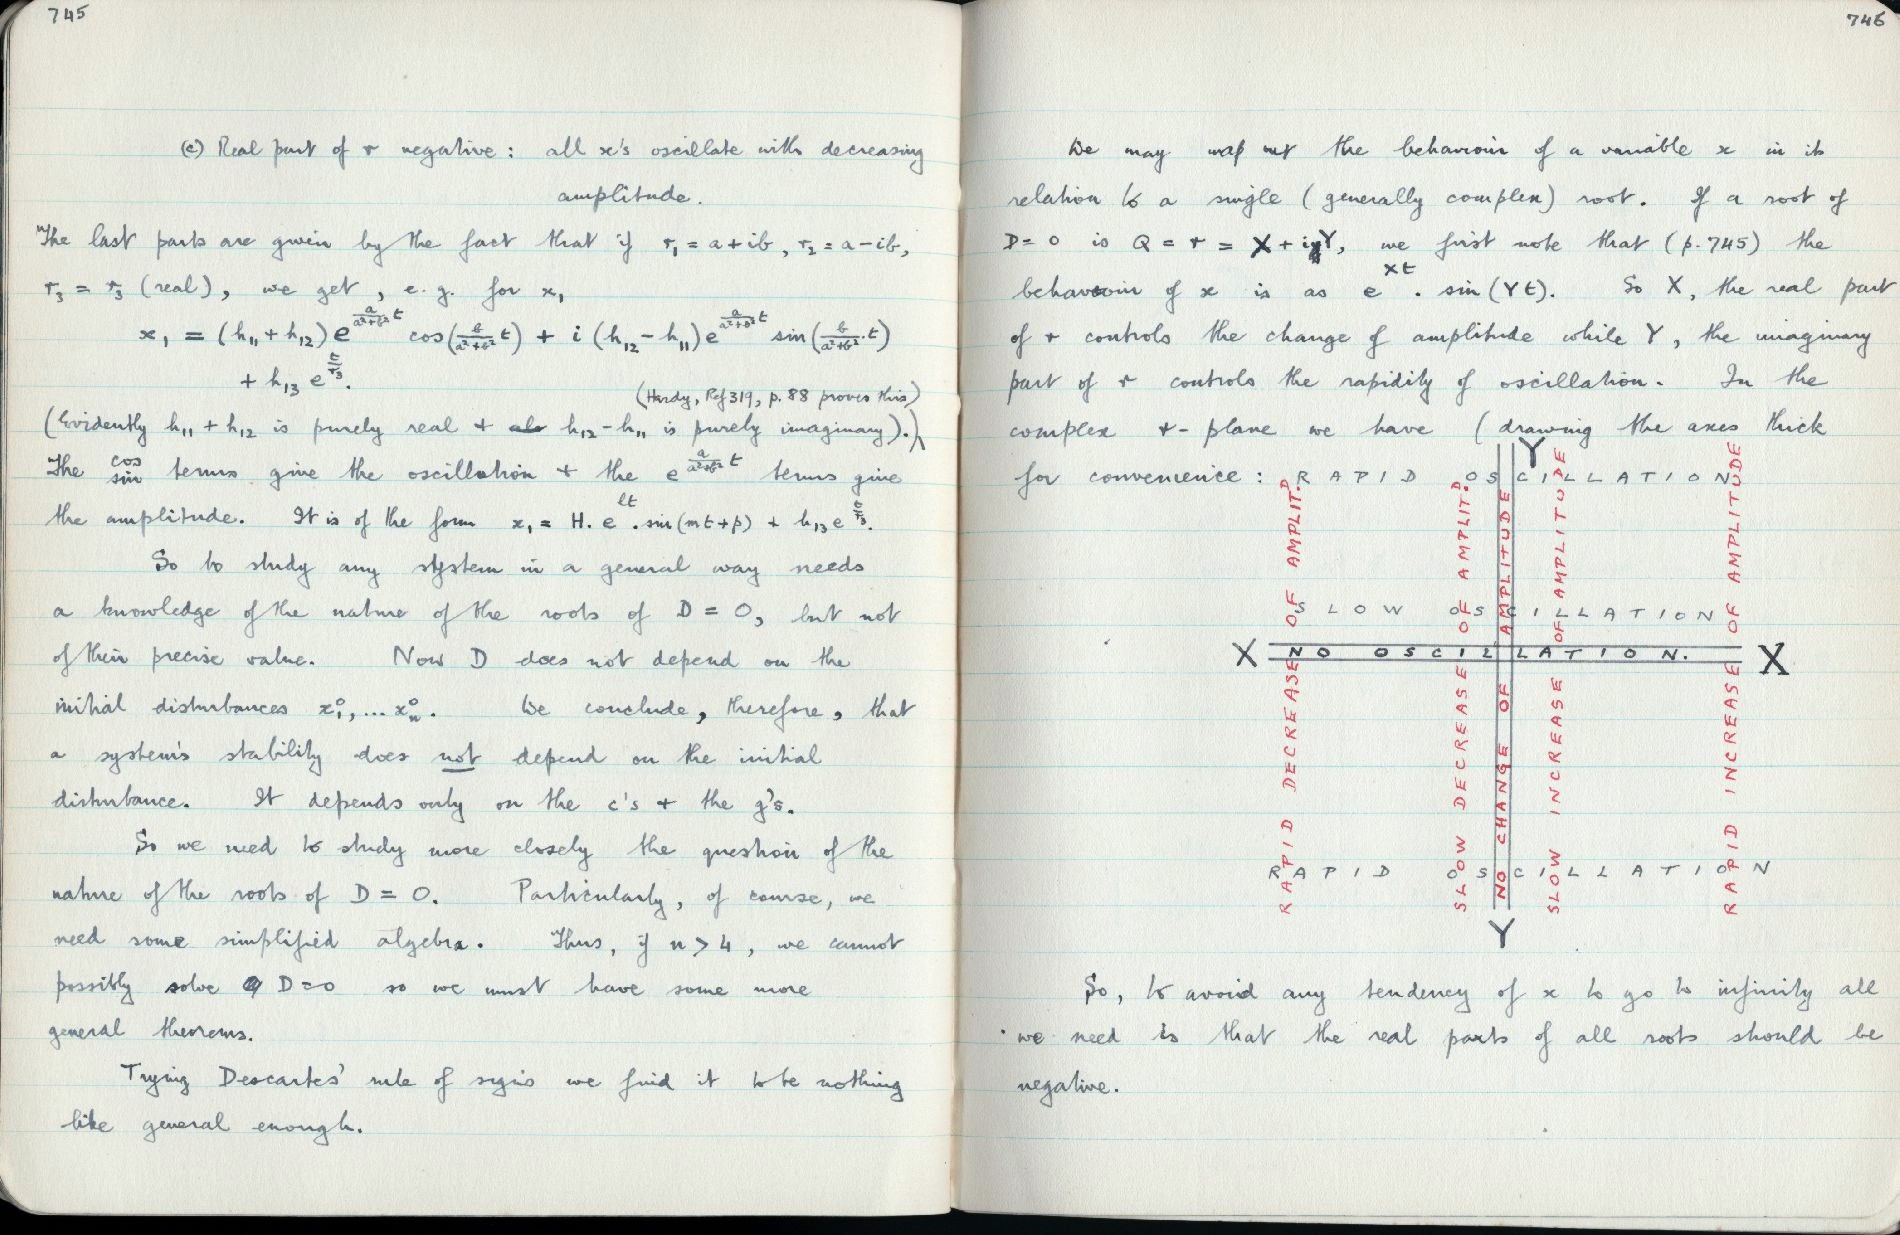 745
(c) Real part of r negative: all x's oscillate with decreasing
amplitude.
The last parts are given by the fact that if r₁ = a+ib, r₂ = a−ib,
r₃ = r₃ (real), we get, e.g. for x₁
x₁ = (h₁₁+h₁₂) e^{\frac{a}{a²+b²}t} cos(\frac{b}{a²+b²}t) + i (h₁₂−h₁₁) e^{\frac{a}{a²+b²}t} sin(\frac{b}{a²+b²}.t)
+ h₁₃ e^{\frac{t}{r₃}}.
(Hardy, Ref 319, p. 88 proves this)
(Evidently h₁₁ + h₁₂ is purely real + h₁₂−h₁₁ is purely imaginary).)
The cos sin terms give the oscillation + the e^{\frac{a}{a²+b²}t} terms give
the amplitude. It is of the form x₁ = H. e^{lt}. sin(mt+p) + h₁₃ e^{\frac{t}{r₃}}.
So to study any system in a general way needs
a knowledge of the nature of the roots of D = 0, but not
of their precise value. Now D does not depend on the
initial disturbances x₁°, ... xₙ°. We conclude, therefore, that
a system's stability does not depend on the initial
disturbance. It depends only on the c's + the g's.
So we need to study more closely the question of the
nature of the roots of D = 0. Particularly, of course, we
need some simplified algebra. Thus, if n > 4, we cannot
possibly solve D=0 so we must have some more
general theorems.
Trying Descartes' rule of signs we find it to be nothing
like general enough.
746
We may map out the behaviour of a variable x in its
relation to a single (generally complex) root. If a root of
D=0 is Q = r = X + iY, we first note that (p. 745) the
behaviour of x is as e^{Xt} . sin(Yt). So X, the real part
of r controls the change of amplitude while Y, the imaginary
part of r controls the rapidity of oscillation. In the
complex r-plane we have (drawing the axes thick
for convenience:
Y
RAPID OSCILLATION
SLOW OSCILLATION
X NO OSCILLATION. X
RAPID OSCILLATION
Y
RAPID DECREASE OF AMPLITD
SLOW DECREASE OF AMPLITD
NO CHANGE OF AMPLITUDE
SLOW INCREASE OF AMPLITUDE
RAPID INCREASE OF AMPLITUDE
So, to avoid any tendency of x to go to infinity all
we need is that the real parts of all roots should be
negative.